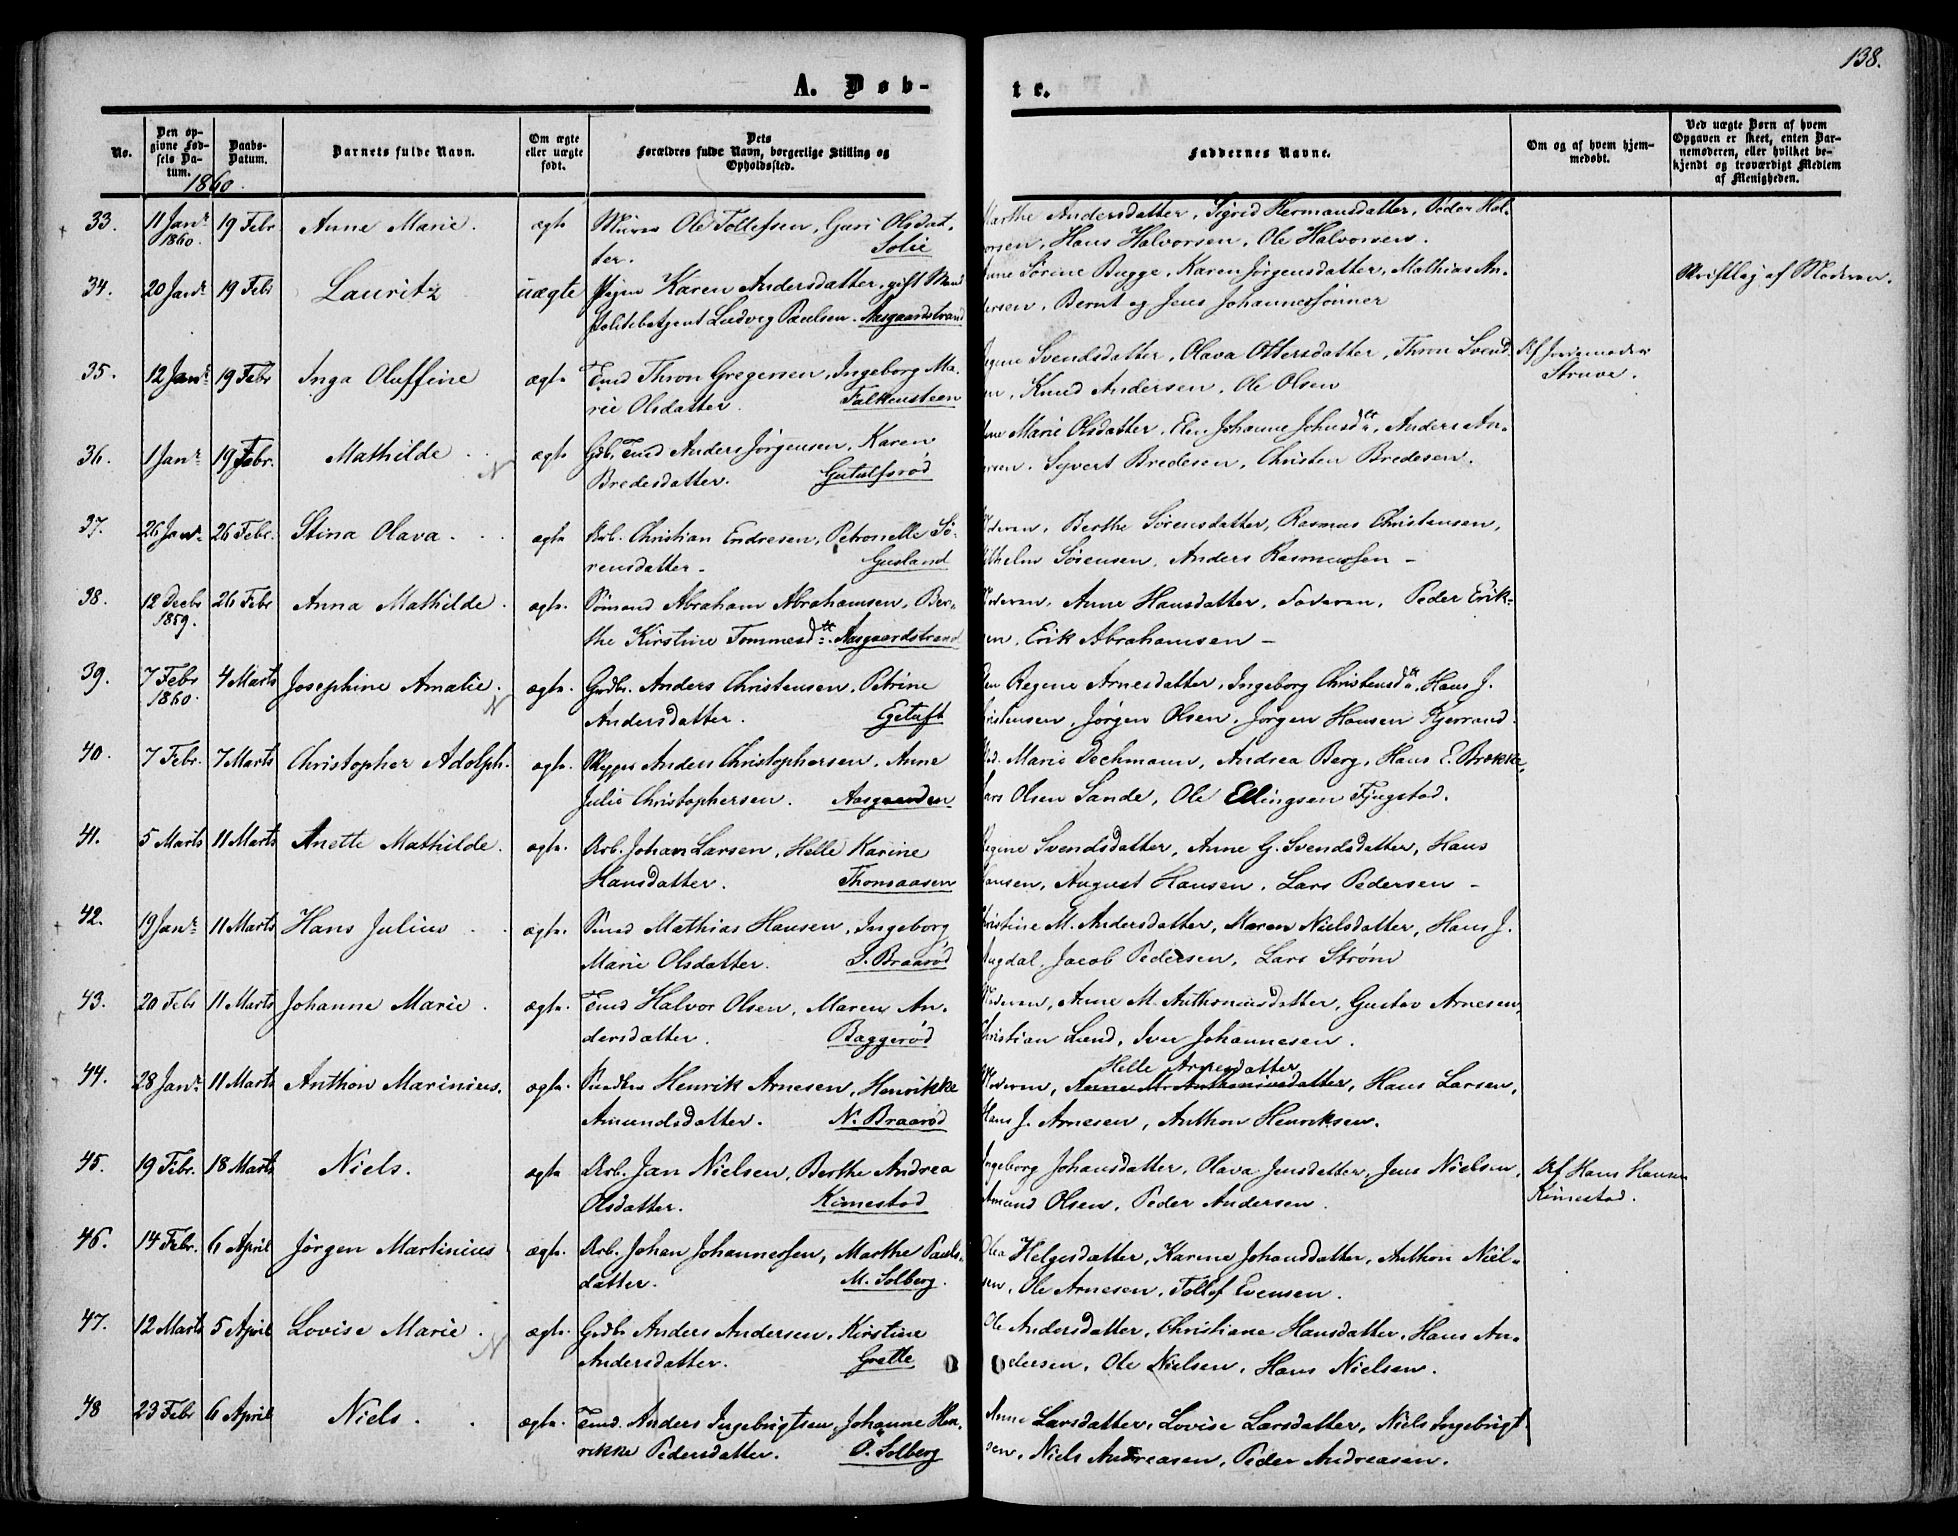 138.
A. Døb-
te.
No.
Den op-
givne Fød-
sels Da-
tum.
Daabs-
Datum.
Barnets fulde Navn.
Om ægte
eller uægte
født.
Dets
Forældres fulde Navn, borgerlige Stilling og
Opholdssted.
Faddernes Navne.
Om og af hvem hjem-
medøbt.
Ved uægte Børn af hvem
Opgaven er skeet, enten Bar-
nemoderen, eller hvilket be-
kjendt og troværdigt Medlem
af Menigheden.
1860.
33. 11 Janr 1860. 19 Febr Anne Marie. ægte Murer Ole Tollefsen, Guri Olsdat-
ter. Solie
Marthe Andersdatter, Sigrid Hermansdatter, Peder Hal-
vorsen, Hans Halvorsen, Ole Halvorsen.
34. 20 Janr 19 Febr Lauritz uægte Pigen Karen Andersdatter, gift Mand
Politebetjent Ludvig Paulsen. Aasgaardstrand
Anne Sørine Bugge, Karen Jørgensdatter, Mathias An-
dersen, Bernt og Jens Johannessønner
Skriftlig af Moderen.
35. 12 Janr 19 Febr Inga Oluffine ægte Tmd Thron Gregersen, Ingeborg Ma-
rie Olsdatter. Falkensteen
Regine Svendsdatter, Olava Ottersdatter, Thron Svend-
sen, Knud Andersen, Ole Olsen
Af Jordemoder
Struve.
36. 1 Janr 19 Febr. Mathilde. N ægte Gdbr. Tmd Anders Jørgensen, Karen
Bredesdatter. Gutulfsrød
Marie Olsdatter, Elen Johanne Johnsdtr, Anders An-
dersen, Syvert Bredesen, Christen Bredesen.
37. 26 Janr 26 Febr. Stina Olava. ægte Arb. Christian Endresen, Petronelle Sø-
rensdatter. Gusland
Moderen, Berthe Sørensdatter, Rasmus Christensen,
Vilhelm Sørensen, Anders Rasmussen -
38. 12 Decbr 1859. 26 Febr Anna Mathilde. ægte. Sømand Abraham Abrahamsen, Ber-
the Kirstine Tommesdtr. Aasgaardstrand
Moderen, Anne Hansdatter, Faderen, Peder Erik-
sen, Erik Abrahamsen -
39. 7 Febr 1860. 4 Marts Josephine Amalie. N ægte. Grdbr. Anders Christensen, Petrine
Andersdatter. Egetuft
Elen Regine Arnesdatter, Ingeborg Christensdtr, Hans J.
Christensen, Jørgen Olsen, Jørgen Hansen Kjerrand.
40. 7 Febr. 7 Marts Christopher Adolph. ægte. Skipper Anders Christophersen, Anne
Julie Christophersen. Aasgaarden
Mad. Marie Dechmann, Andrea Berg, Hans E. Brekke,
Lars Olsen Sande, Ole Ellingsen Fjugstad.
41. 5 Marts 11 Marts Anette Mathilde. ægte. Arb. Johan Larsen, Helle Karine
Hansdatter. Thomaasen
Regine Svendsdatter, Anne G. Svendsdatter, Hans
Hansen, August Hansen, Lars Pedersen -
42. 19 Janr 11 Marts Hans Julius ægte. Smed Mathias Hansen, Ingeborg
Marie Olsdatter. S. Braarød
Christine M. Andersdatter, Maren Nielsdatter, Hans J.
Augdal, Jacob Pedersen, Lars Strøm
43. 20 Febr 11 Marts Johanne Marie. ægte. Tmd Halvor Olsen, Maren An-
dersdatter. Baggerød
Moderen, Anne M. Anthoniusdatter, Gustav Arnesen,
Christian Lund, Iver Johannesen.
44. 28 Janr 11 Marts Anthon Marinius. ægte. Henrik Arnesen, Henrikke
Amundsdatter. N. Braarød
Helle Arnesdatter
Moderen, Anne M. Anthoniusdatter, Hans Larsen,
Hans J. Arnesen, Anthon Henriksen.
45. 19 Febr. 18 Marts Niels. ægte Arb. Jan Nielsen, Berthe Andrea
Olsdatter. Kimestad
Ingeborg Johansdatter, Olava Jensdatter, Jens Nielsen,
Amund Olsen, Peder Andersen.
Af Hans Hansen
Kimestad.
46. 14 Febr. 6 April Jørgen Martinius ægte. Arb. Johan Johannessen, Marthe Pauls-
datter. M. Solberg.
Olea Helgesdatter, Karine Johansdatter, Anthon Niel-
sen, Ole Arnesen, Tollef Evensen.
47. 12 Marts 5 April Lovise Marie. N ægte. Grdbr Anders Andersen, Kirstine
Andersdatter. Grette
Ole Andersdatter, Christiane Hansdatter, Hans An-
dersen, Ole Nielsen, Hans Nielsen.
48 23 Febr 6 April Niels. ægte. Tmd. Anders Ingebrigtsen, Johanne Hen-
rikke Pedersdatter. O. Solberg
Anne Larsdatter, Lovise Larsdatter, Niels Ingebrigt-
sen, Niels Andreasen, Peder Andreasen.